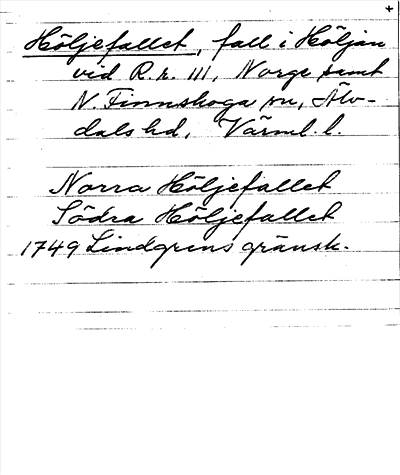 +
Höljefallet, fall i Höljan
vid R.r. 111, Norge samt
N. Finnskoga sn, Älv-
dals hd, Värml. l.
Norra Höljefallet
Södra Höljefallet
1749 Lindgrens gränsk.